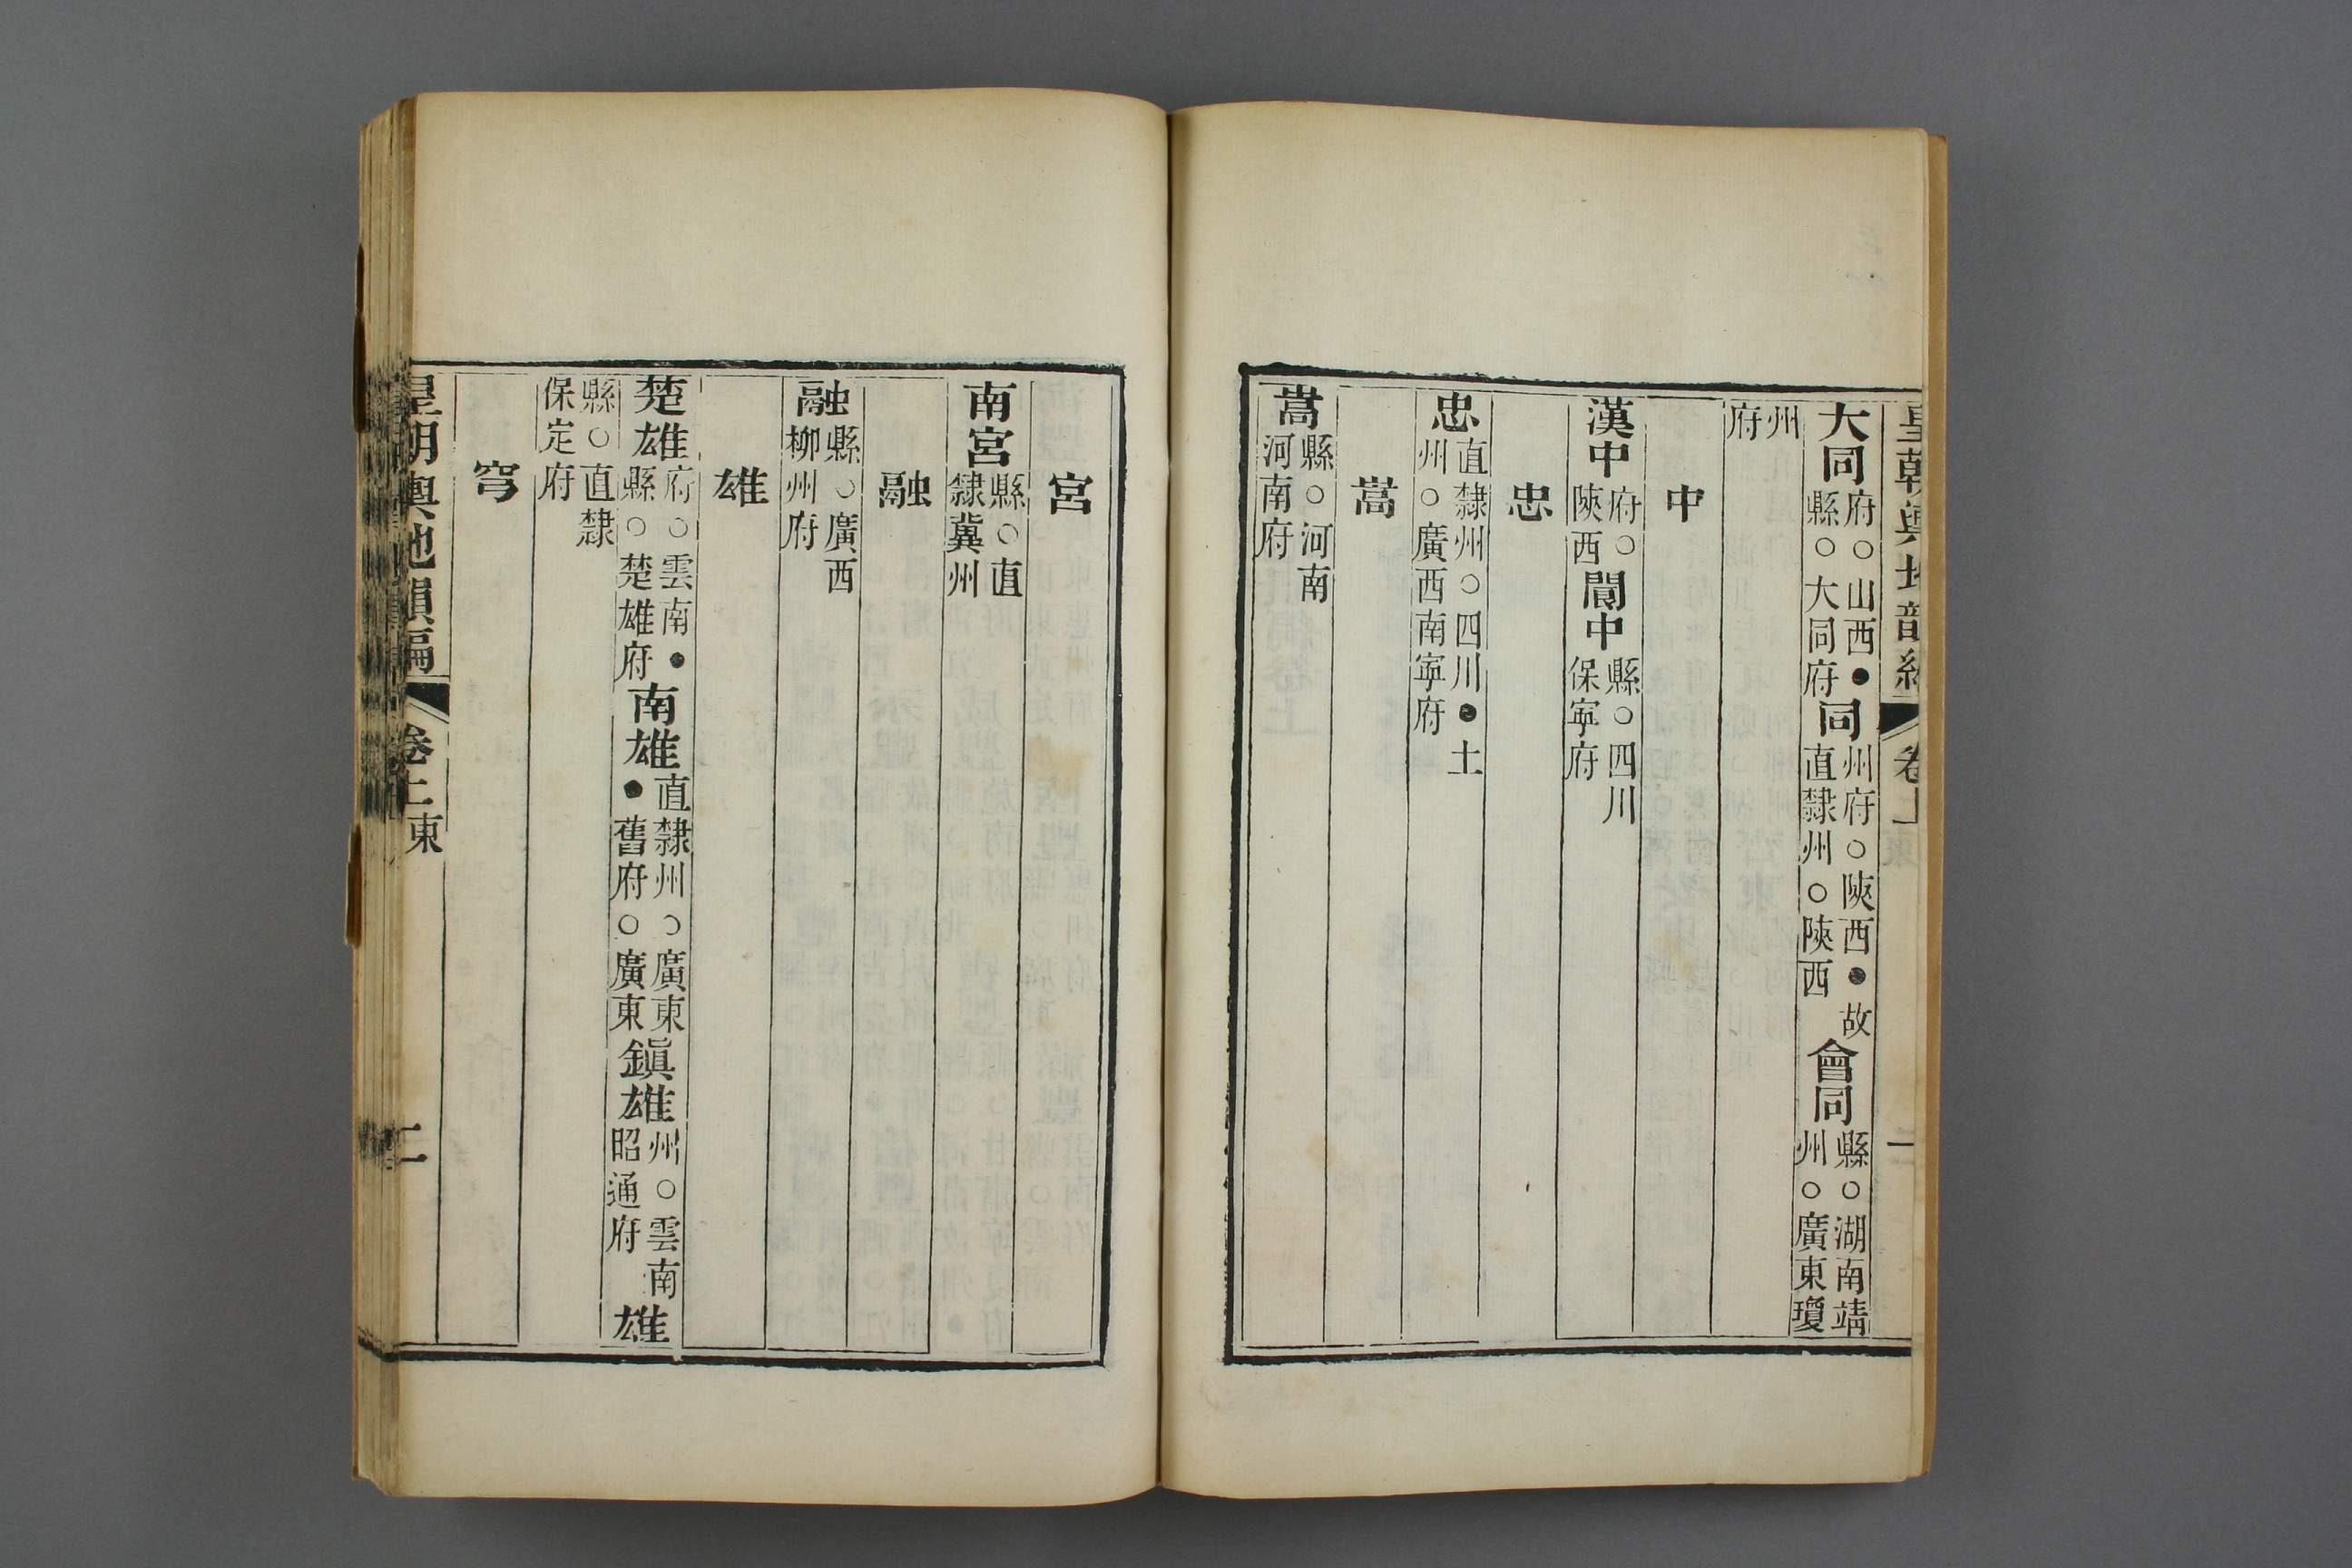 皇朝輿地韻編 卷上 東 一
大同府○山西●縣○大同府同州府○陝西●故直隸州○陝西會同縣○湖南靖州○廣東瓊
州府
中
漢中府○陝西閬中縣○四川保寧府
忠
忠直隸州○四川●土州○廣西南寧府
嵩
嵩縣○河南河南府
宮
南宮縣○直隸冀州
融
融縣○廣西柳州府
雄
楚雄府○雲南●縣○楚雄府南雄直隸州○廣東●舊府○廣東鎮雄州○雲南昭通府雄
縣○直隸保定府
穹
皇朝輿地韻編 卷上 東 二